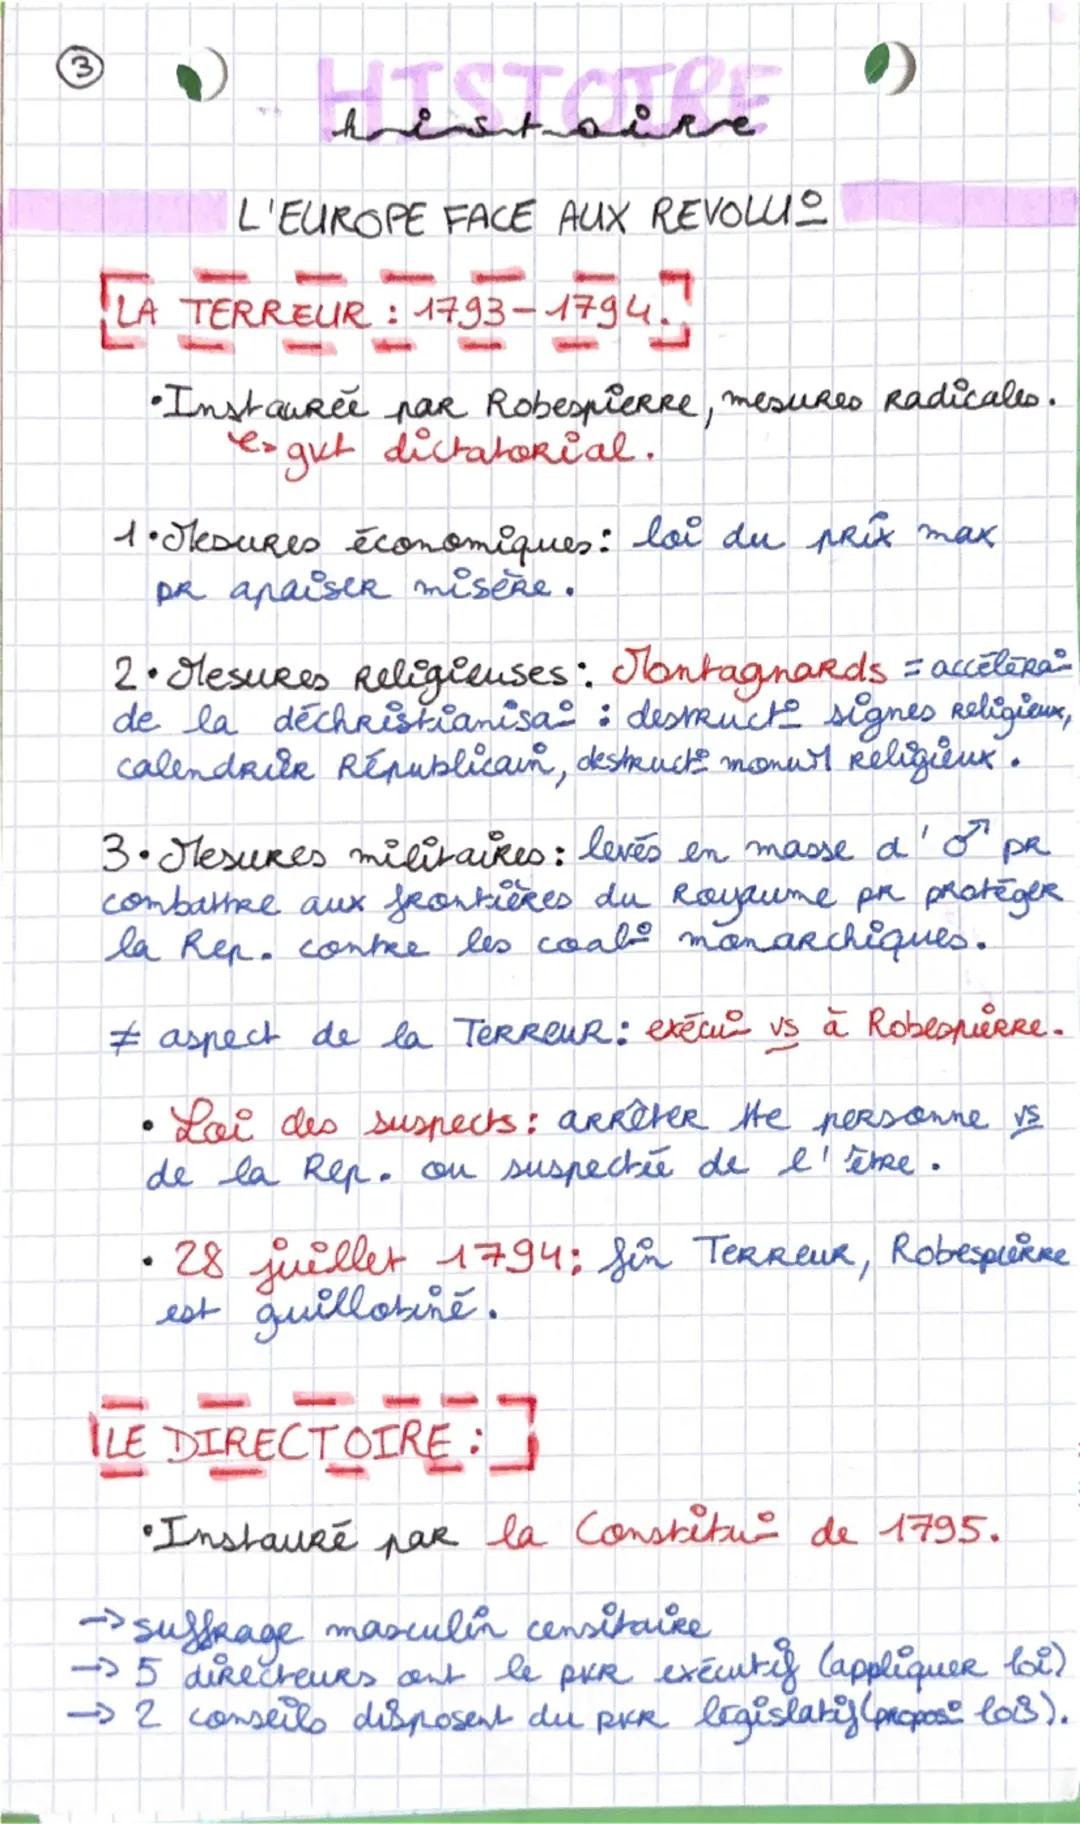 3
HISTOIRE
histoire
L'EUROPE FACE AUX REVOLU°
LA TERREUR : 1793-1794.
•Instaurée par Robespierre, mesures radicales.
↳ gvt dictatorial.
1•Mesures économiques: loi du prix max
pr apaiser misère.
2•Mesures religieuses: Montagnards = accéléra°
de la déchristianisa° : destruct° signes religieux,
calendrier Républicain, destruct° monumt religieux.
3•Mesures militaires: levés en masse d'♂ pr
combattre aux frontières du Royaume pr protéger
la Rep. contre les coali° monarchiques.
≠ aspect de la Terreur: exécu° vs à Robespierre.
• Loi des suspects: arrêter tte personne vs
de la Rep. ou suspectée de l'être.
• 28 juillet 1794: fin Terreur, Robespierre
est guillotiné.
LE DIRECTOIRE :
•Instauré par la Constitu° de 1795.
→ suffrage masculin censitaire
→ 5 directeurs ont le pvr exécutif (appliquer loi)
→ 2 conseils disposent du pvr législatif (propos° lois).